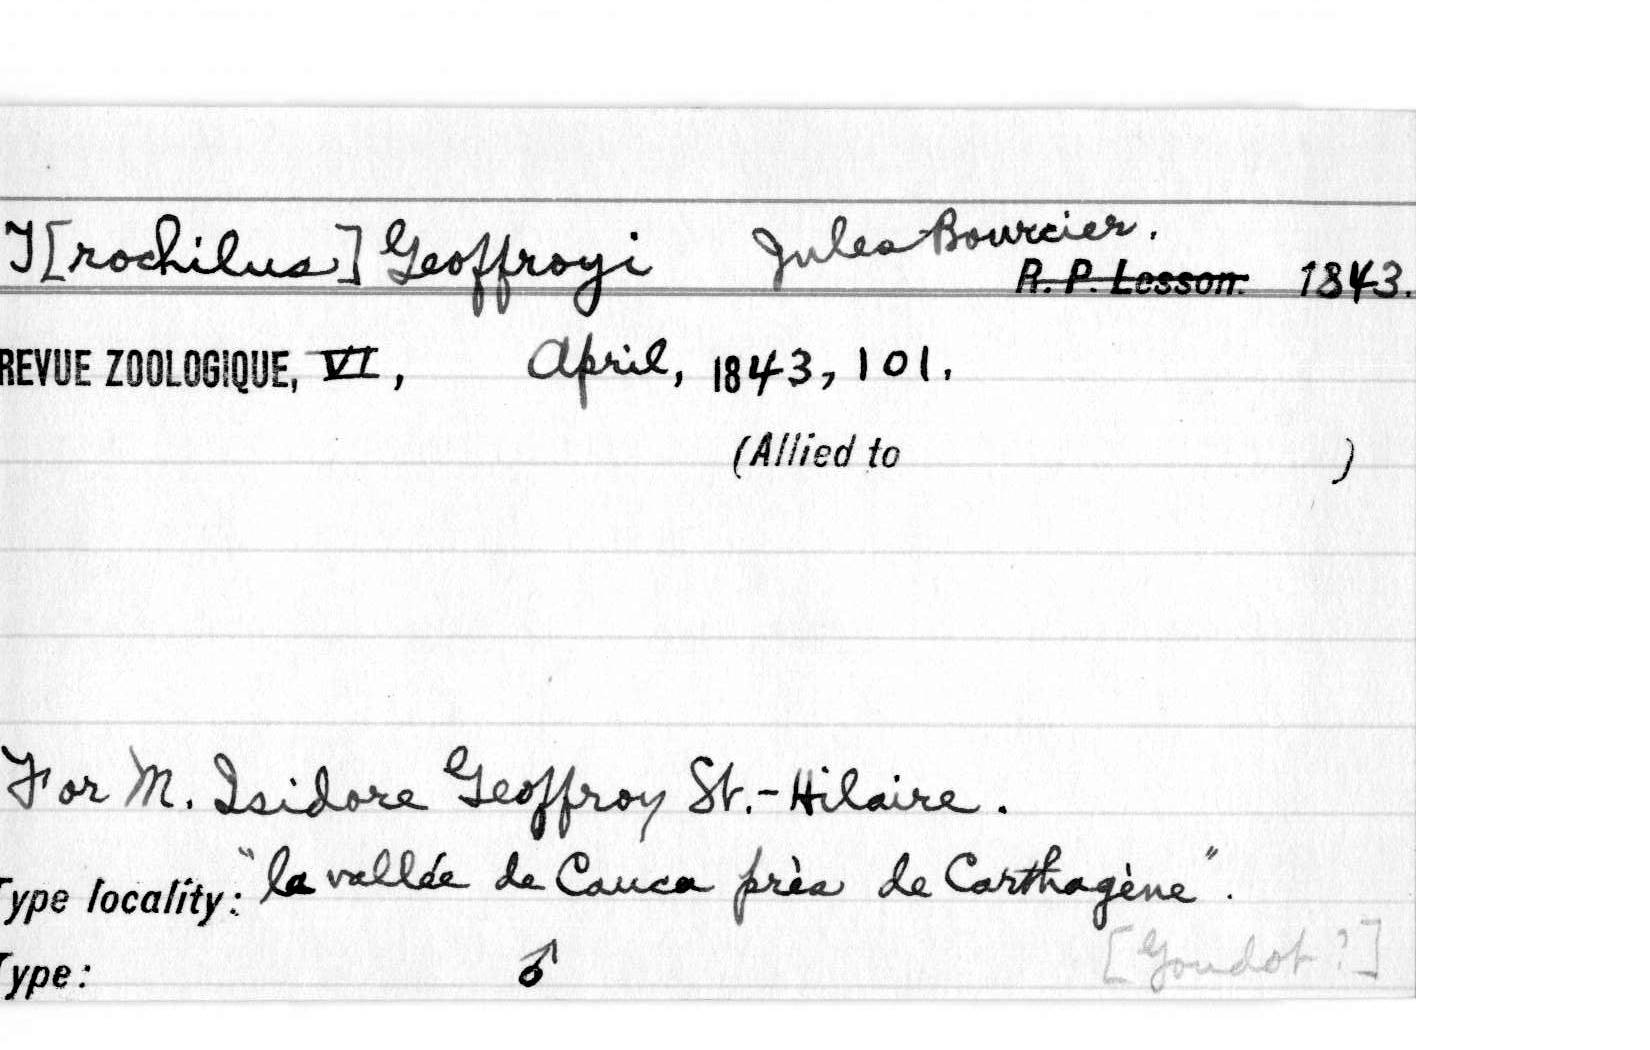 T[rochilus] Geoffroyi Jules Bourcier.
R. P. Lesson. 1843.
REVUE ZOOLOGIQUE, VI, April, 1843, 101.
(Allied to )
For M. Isidore Geoffroy St.-Hilaire.
Type locality: "la vallée de Cauca près de Carthagène".
[Goudot?]
Type: ♂